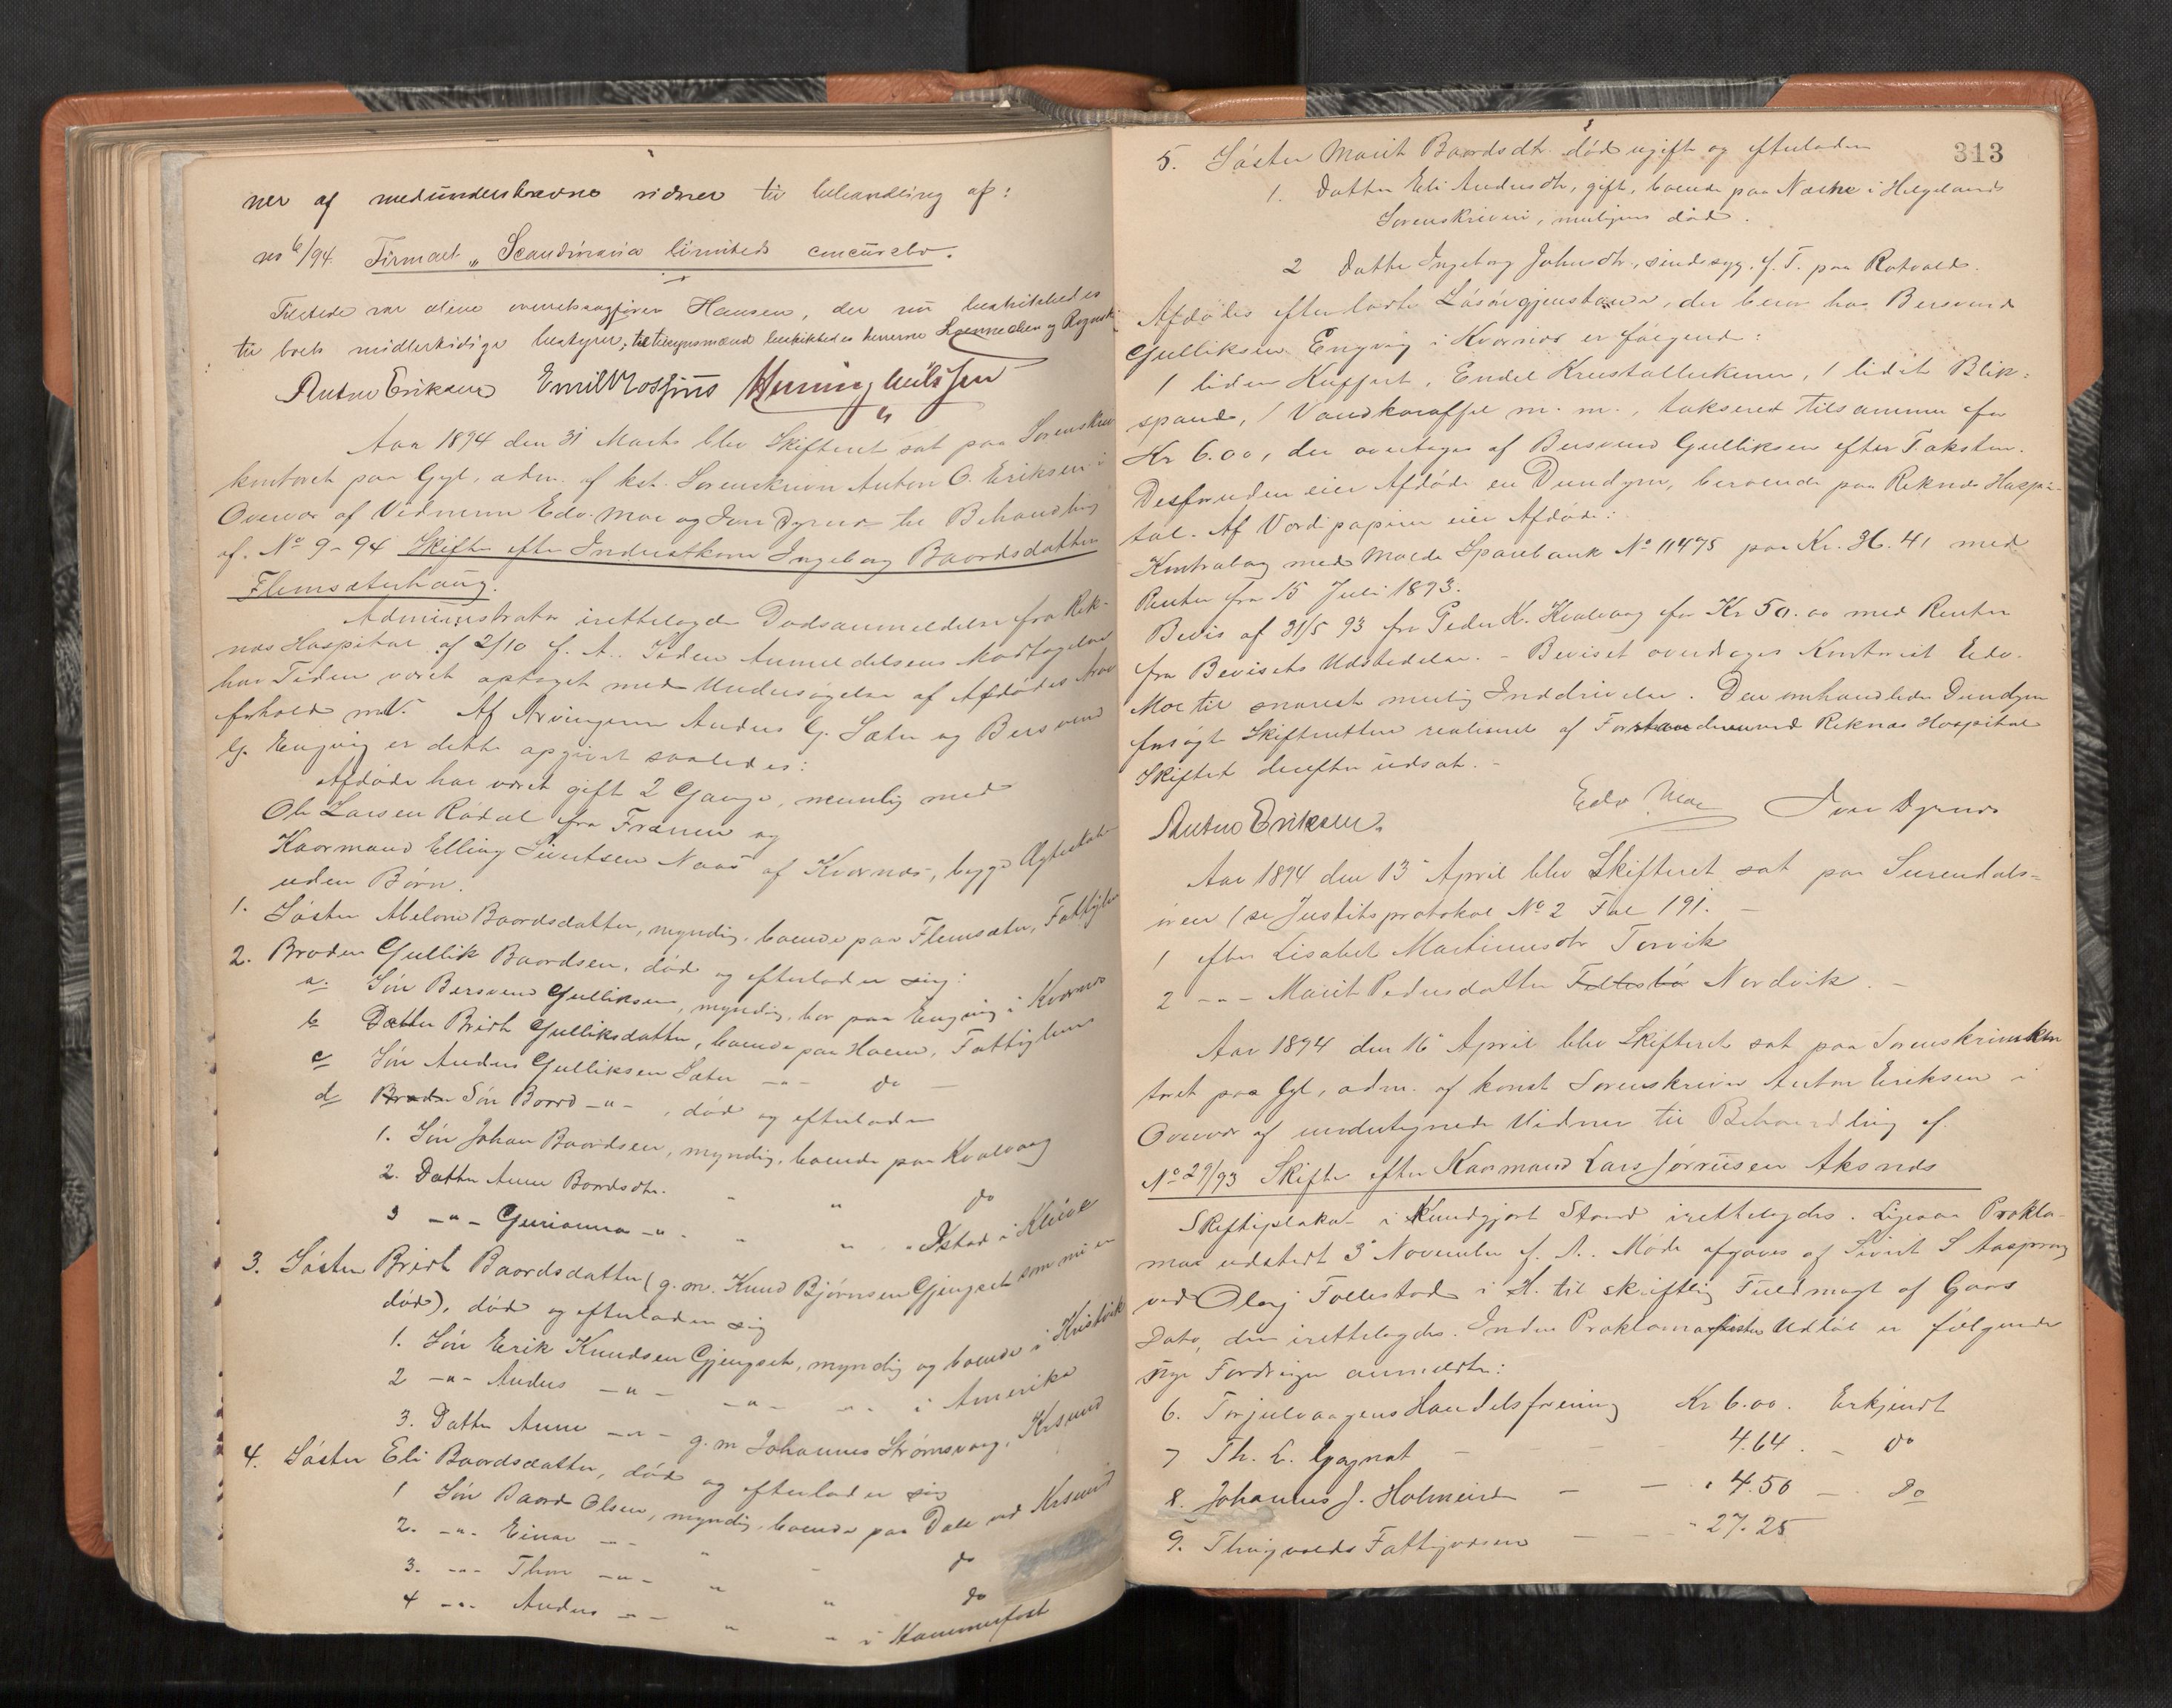 ner af medunderskrevne vidner til behandling af:
no 6/94. Firmaet „Scandinavia limiteds concursbo.
Tilstede var alene overretssagfører Hansen, der nu beskikkedes
til boets midlertidige bestyrer; til tilsynsmænd beskikkedes herrerne Loennechen og
Anton Eriksen Emil Mossius Henning
Aar 1894 den 31 Marts blev Skifteret sat paa Sorenskriver
kontoret paa Gyl, adm. af kst. Sorenskriver Anton O. Eriksen i
Overvær af Vidnerne Edv. Moe og Iver Dyrnes til Behandling
af. No 9-94 Skifte efter Inderstkone Ingeborg Baardsdatter
Flemsæterhaug.
Administrator irettelagde Dødsanmeldelse fra Rek-
næs Hospital af 2/10 f. A. Siden Anmeldelsens Modtagelse
har Tiden været optaget med Undersøgelse af Afdødes Arve
forhold m.V. Af Arvingerne Anders G. Sæter og Bersvend
G. Engvig er dette opgivet saaledes:
Afdøde har været gift 2 Gange, nemlig med
Ole Larsen Rødal fra Frænen og
Kaarmand Elling Sivertsen Naas af Kvernes, begge Ægteskaber
uden Børn.
1. Søster Abelone Baardsdatter, myndig, boende paa Flemsæter, Fattiglem
2. Broder Gullik Baardsen, død og efterlader sig:
a. Søn Bersvend Gulliksen, myndig, bor paa Engvig i Kvernes
b Datter Brit Gulliksdatter, boende paa Hoem, Fattiglem
c Søn Anders Gulliksen Sæter -"- do -
d Broder Søn Baard -"- , død og efterlader
1. Søn Johan Baardsen, myndig, boende paa Kvalvaag
2. Datter Anne Baardsdtr. " " do
3 -"- Gurianna -"- " " Istad i Kleive
3. Søster Brit Baardsdatter (g. m. Knud Bjørnsen Gjengset som nu er
død), død og efterlader sig
1. Søn Erik Knudsen Gjengset, myndig og boende i Kristvik
2 -"- Anders -"- -"- -"- i Amerika
3. Datter Anne -"- g. m Johannes Strømsvaag, Krsund
4. Søster Eli Baardsdatter, død og efterlader sig
1 Søn Baard Olsen, myndig, boende paa Dale ved Krsund
2. -"- Einar -"- " - do
3. -"- Thor -"- " " do
4 -"- Anders -"- " " i Hammerfest
313
5. Søster Marit Baardsdtr. død ugift og efterlader
1. Datter Eli Andersdtr, gift, boende paa Næsne i Helgelands
Sorenskriveri, muligens død.
2 Datter Ingeborg Johnsdtr, sindssyg, f. T. paa Rotvold.
Afdødes efterladte Løsøregjenstande, der beror hos Bersvend
Gulliksen Engvig i Kvernes er følgende:
1 liden Kuffert, Endel Krustallerkener, 1 lidet Blik-
spand, 1 Vandkaraffel m. m., takseret tilsammen for
Kr 6.00, der overtages af Bersvend Gulliksen efter Taksten.
Desforuden eier Afdøde en Dundyne, beroende paa Reknæs Hospi-
tal. Af Værdipapirer eier Afdøde:
Kontrabog med Molde Sparebank No 11475 paa Kr. 36.41 med
Renter fra 15 Juli 1893.
Bevis af 31/5 93 fra Peder K. Kvalvaag for Kr 50.00 med Renter
fra Bevisets Udstedelse. - Beviset overdrages Kontorist Edv.
Moe til snarest mulig Inddrivelse. Den omhandlede Dundyne
forsøgte Skifteretten realiseret af Forstanderen ved Reknæs Hospital
Skiftet derefter udsat. -
Anton Eriksen. Edv Moe Iver Dyrnes
Aar 1894 den 13' April blev Skifteret sat paa Surendals-
øren (se Justitsprotokol No 2 Fol 191. -
1 efter Lisabet Martinusdtr Torvik
2 -"- Marit Pedersdatter Nordvik. -
Aar 1894 den 16' April blev Skifteret sat paa Sorenskriverkon
toret paa Gyl, adm. af konst Sorenskriver Anton Eriksen i
Overvær af undertegnede Vidner til Behandling af
No 29/93 Skifte efter Kaarmand Lars Aksnes
Skifteplakat i kundgjort Stand irettelagdes. Ligesaa Prokla-
ma udstedt 3' November f. A. Møde afgaves af Sivert S Aasprong
ved Olaj Follestad i H. til skriftlig Fuldmagt af Gaars
Dato, der irettelagdes. Inden Proklamafristens Udløb er følgende
nye Fordringer anmeldte:
6. Torjulvaagens Handelsforening Kr 6.00. Erkjendt
7 Th. L. Gagnat - 4.64. - do
8. Johannes J. Holmeide - - " 4.50 - do
9. Thingvolds Fattigvæsen - - " 27.25